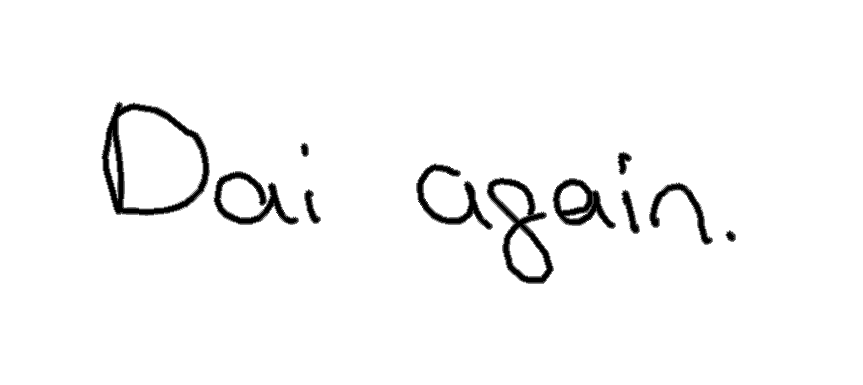 Dai again.